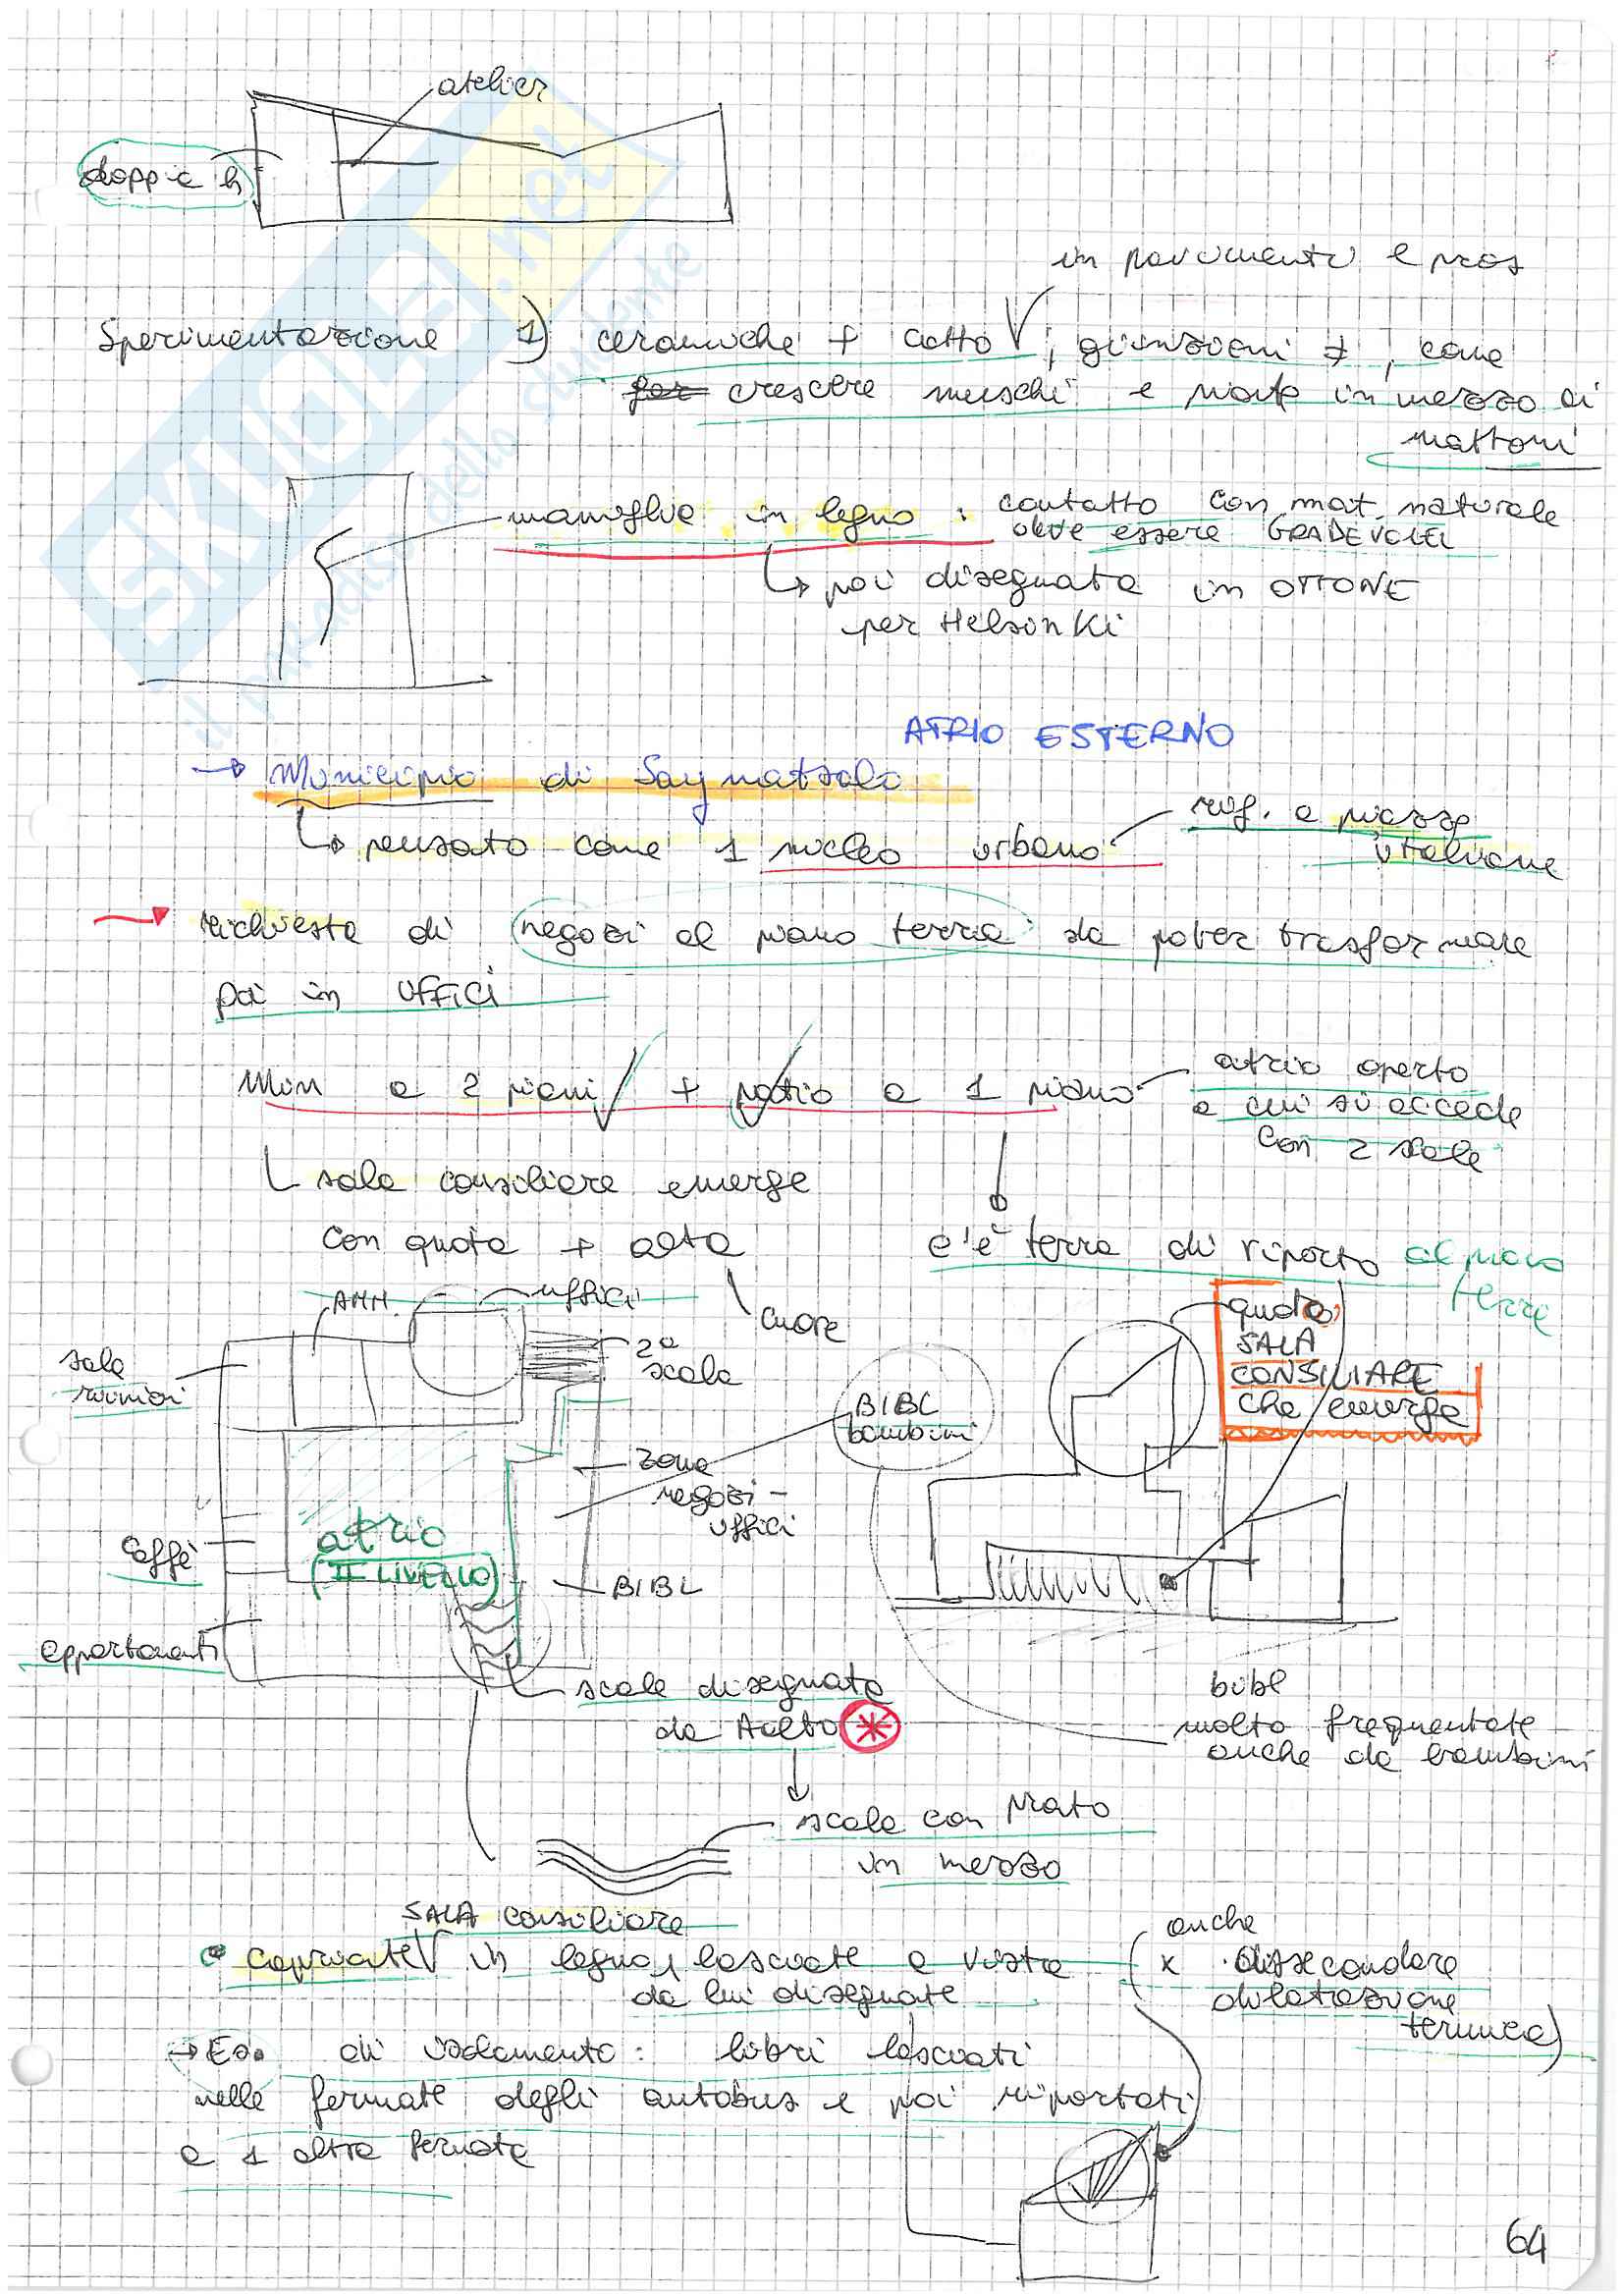 atelier
doppia h
in pavimento e pros
Sperimentazione 1) ceramiche + cotto, giunzioni ≠, come
far crescere muschi e prato in mezzo ai
mattoni
maniglie in legno : contatto con mat. naturale
deve essere GRADEVOLE
↳ poi disegnata in OTTONE
per Helsinki
ATRIO ESTERNO
→ Municipio di Saynatsalo
↳ pensato come 1 nucleo urbano
rif. a piazze
italiane
→ richiesta di negozi al piano terra da poter trasformare
poi in UFFICI
Mun a 2 piani + patio a 1 piano
atrio aperto
a cui si accede
con 2 scale
sala consiliare emerge
con quota + alta
cuore
c'è terra di riporto al piano
terra
AMM.
uffici
2a
scala
sala
riunioni
zona
negozi -
uffici
BIBL
bambini
quota
SALA
CONSILIARE
che emerge
atrio
(II LIVELLO)
caffè
BIBL
appartamenti
scale disegnate
da Aalto *
bibl
molto frequentate
anche da bambini
scale con prato
in mezzo
SALA consiliare
• capriate in legno, lasciate a vista
da lui disegnate
(anche
x assecondare
dilatazione
termica)
→ Es. di isolamento: libri lasciati
nelle fermate degli autobus e poi riportati
a 1 altra fermata
64
SKUOLA.net
il paradiso dello studente